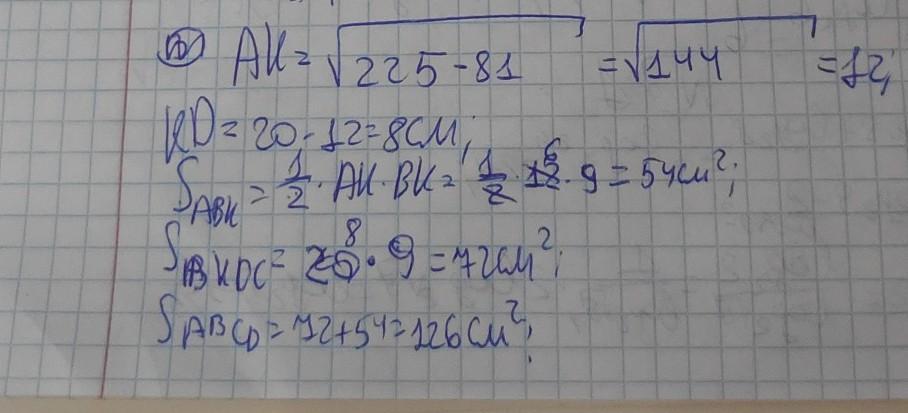 AK = √225-81 = √144 = 12;
KD = 20-12=8см;
S ABK = 1/2 · AK · BK = 1/2 · 12 6 · 9 = 54см²;
S BKDC = 20 8 · 9 = 72см²;
S ABCD = 72+54=126см²;